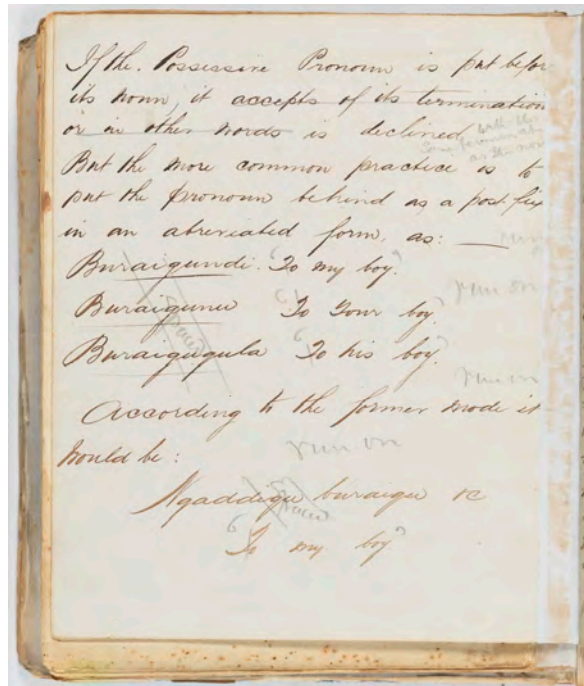 If the. Possessive Pronoun is put befor
its noun, it accepts of its termination
or in other words is declined with the
same termination
as the noun
But the more common practice is to
put the pronoun behind as a post fix
in an abreviated form, as: —
Buraigundi. 'To my boy.'
Buraigunu 'To Your boy.' run on
Buraigugula 'To his boy.'
run on
According to the former mode it
would be:
run on
Ngaddigu buraigu &c
'To my boy'